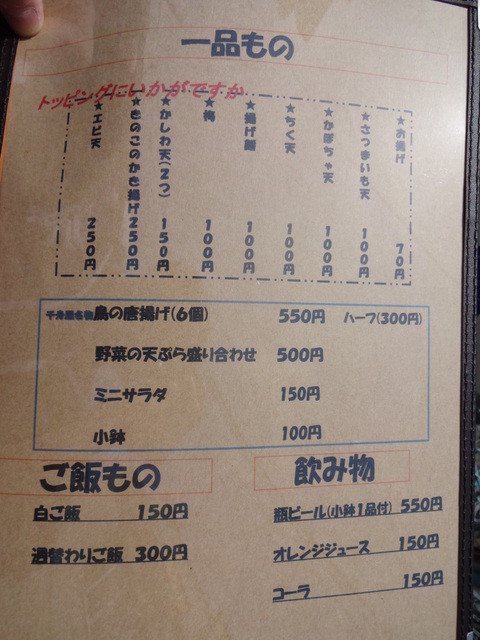 一品もの
トッピングにいかがですか
★お揚げ 70円
★さつまいも天 100円
★かぼちゃ天 100円
★ちく天 100円
★揚げ餅 100円
★梅 100円
★かしわ天(2つ) 150円
★きのこのかき揚げ 250円
★エビ天 250円
鳥の唐揚げ(6個) 550円 ハーフ(300円)
野菜の天ぷら盛り合わせ 500円
ミニサラダ 150円
小鉢 100円
ご飯もの
白ご飯 150円
週替わりご飯 300円
飲み物
瓶ビール(小鉢1品付) 550円
オレンジジュース 150円
コーラ 150円